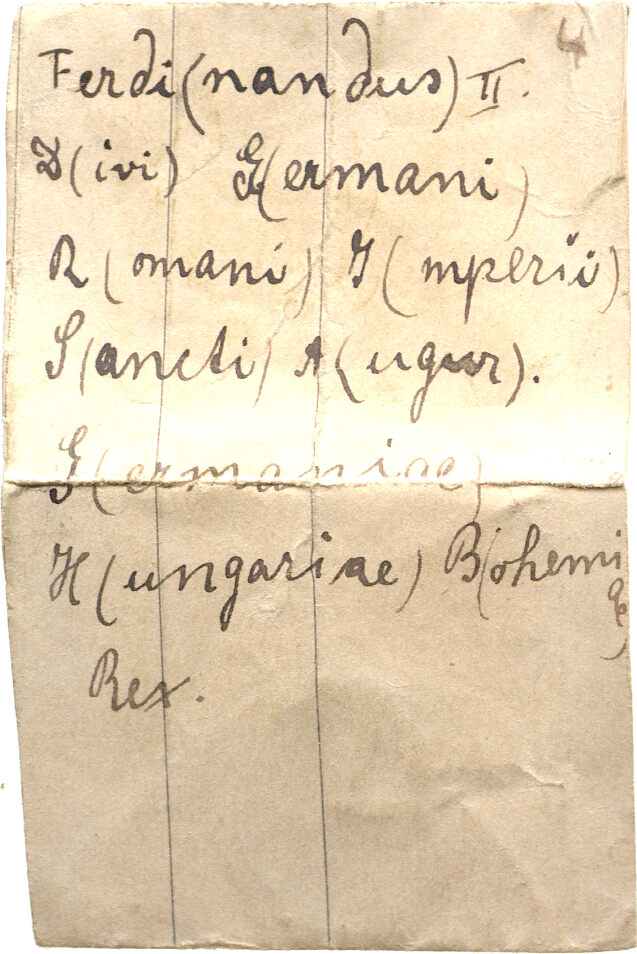 4
Ferdi(nandus) II.
D(ivi) G(ermani)
R(omani) I(mperii)
S(ancti) A(ugur).
G(ermaniae)
H(ungariae) B(ohemiae)
Rex.